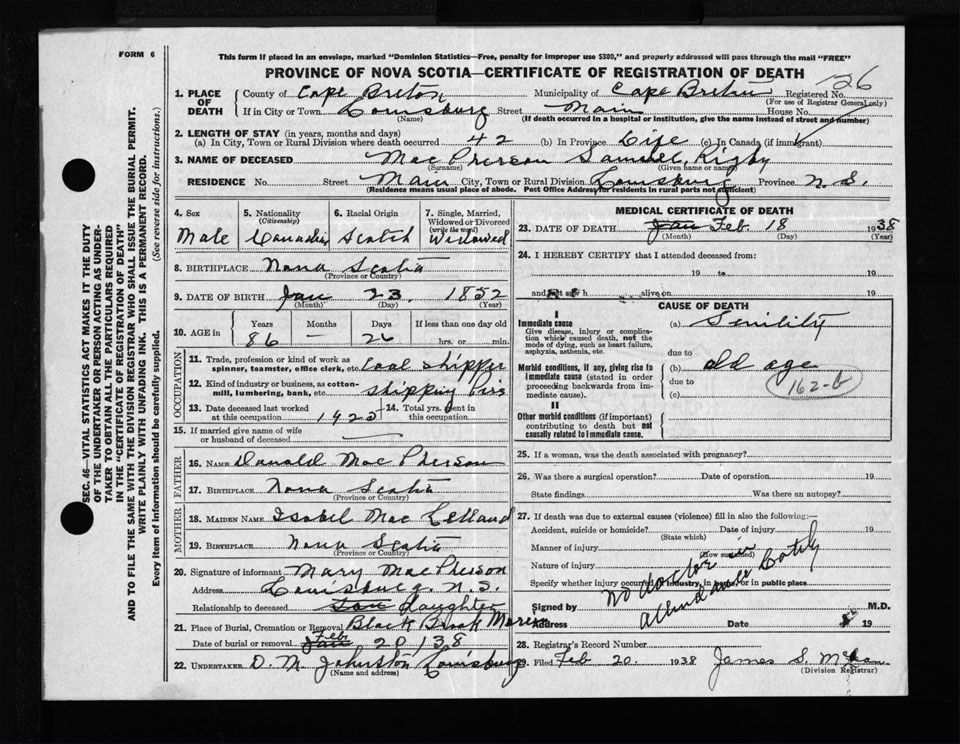 FORM 6
This form if placed in an envelope, marked "Dominion Statistics—Free, penalty for improper use $300," and properly addressed will pass through the mail "FREE"
PROVINCE OF NOVA SCOTIA—CERTIFICATE OF REGISTRATION OF DEATH
26
1. PLACE OF DEATH County of Cape Breton Municipality of Cape Breton Registered No.
(For use of Registrar General only)
If in City or Town Louisburg Street Main House No.
(Name) (If death occurred in a hospital or institution, give the name instead of street and number)
2. LENGTH OF STAY (in years, months and days)
(a) In City, Town or Rural Division where death occurred 42 (b) In Province Life (c) In Canada (if immigrant)
3. NAME OF DECEASED MacPherson Samuel, Rigby
(Surname) (Given name or names)
RESIDENCE No. Street Main City, Town or Rural Division Louisburg Province N.S.
(Residence means usual place of abode. Post Office Address for residents in rural parts not sufficient)
4. Sex Male
5. Nationality (Citizenship) Canadian
6. Racial Origin Scotch
7. Single, Married, Widowed or Divorced (write the word) Widowed
8. BIRTHPLACE Nova Scotia
(Province or Country)
9. DATE OF BIRTH Jan 23 1852
(Month) (Day) (Year)
10. AGE in Years Months Days If less than one day old
86 — 26 hrs. or min.
OCCUPATION
11. Trade, profession or kind of work as spinner, teamster, office clerk, etc. Coal Shipper
12. Kind of industry or business, as cotton-mill, lumbering, bank, etc. Shipping
13. Date deceased last worked at this occupation 1920
14. Total yrs. spent in this occupation
15. If married give name of wife or husband of deceased
FATHER
16. NAME Donald MacPherson
17. BIRTHPLACE Nova Scotia
(Province or Country)
MOTHER
18. MAIDEN NAME Isabel Mac Lelland
19. BIRTHPLACE Nova Scotia
(Province or Country)
20. Signature of informant Mary MacPherson
Address Louisburg. N.S.
Relationship to deceased daughter
21. Place of Burial, Cremation or Removal Black Brook
Date of burial or removal Jan Feb 20 138
22. UNDERTAKER D. M. Johnston Louisburg
(Name and address)
MEDICAL CERTIFICATE OF DEATH
23. DATE OF DEATH Jan Feb 18 1938
(Month) (Day) (Year)
24. I HEREBY CERTIFY that I attended deceased from:
19 to 19
and last saw h alive on 19
CAUSE OF DEATH
I
Immediate cause
Give disease, injury or complication which caused death, not the mode of dying, such as heart failure, asphyxia, asthenia, etc.
(a) Senility
due to
Morbid conditions, if any, giving rise to immediate cause (stated in order proceeding backwards from immediate cause).
(b) old age
due to
(c)
162-b
II
Other morbid conditions (if important) contributing to death but not causally related to immediate cause.
25. If a woman, was the death associated with pregnancy?
26. Was there a surgical operation? Date of operation 19
State findings Was there an autopsy?
27. If death was due to external causes (violence) fill in also the following:—
Accident, suicide or homicide? Date of injury 19
(State which)
Manner of injury
(How sustained)
Nature of injury
Specify whether injury occurred in industry, in home, or in public place
no doctor in attendance
Signed by M.D.
Address Date 19
28. Registrar's Record Number
29. Filed Feb 20. 1938 James S.
(Division Registrar)
SEC. 46—VITAL STATISTICS ACT MAKES IT THE DUTY
OF THE UNDERTAKER OR PERSON ACTING AS UNDER-
TAKER TO OBTAIN ALL THE PARTICULARS REQUIRED
IN THE "CERTIFICATE OF REGISTRATION OF DEATH"
AND TO FILE THE SAME WITH THE DIVISION REGISTRAR WHO SHALL ISSUE THE BURIAL PERMIT.
WRITE PLAINLY WITH UNFADING INK. THIS IS A PERMANENT RECORD.
Every item of information should be carefully supplied. (See reverse side for instructions.)